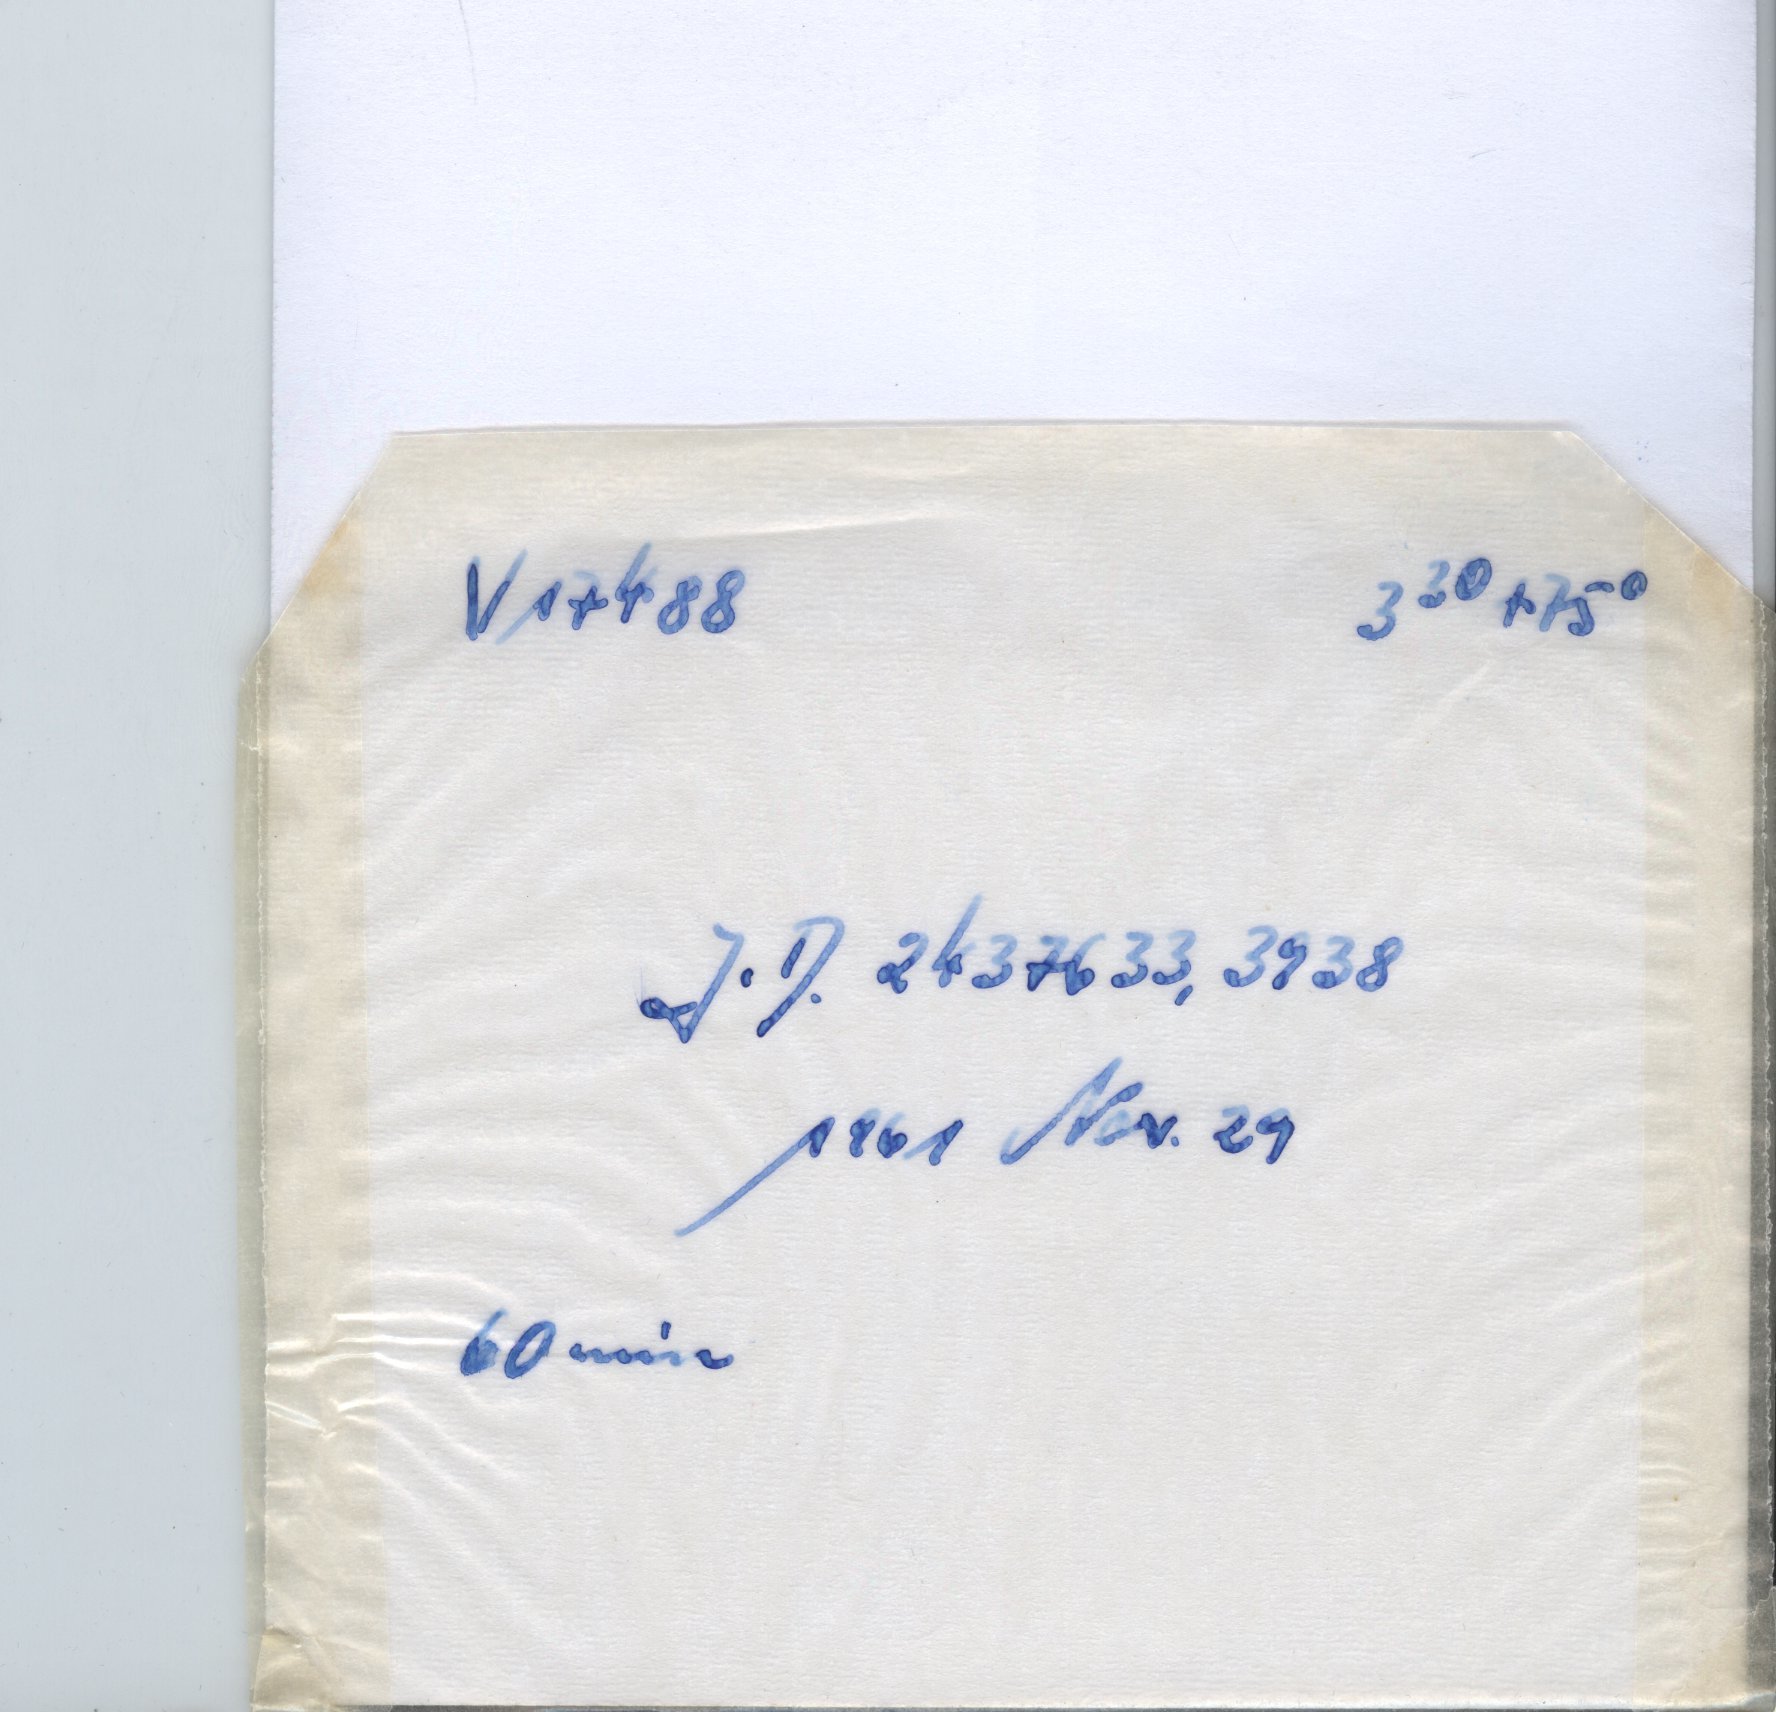 V 17488 3³⁰ +75°
J.D. 2437633,3938
1961 Nov. 29
60 min